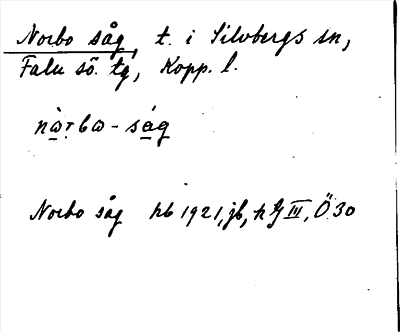 Norbo såg, t. i Silvbergs sn,
Falu sö. tg, Kopp. l.
nò̱rbω - så̱g
Norbo såg hb 1921, jb, hg III, Ö 30